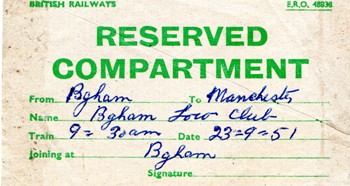 BRITISH RAILWAYS E.R.O. 48838
RESERVED
COMPARTMENT
From Bgham To Manchester
Name Bgham Loco Club
Train 9=30am Date 23=9=51
Joining at Bgham
Signature